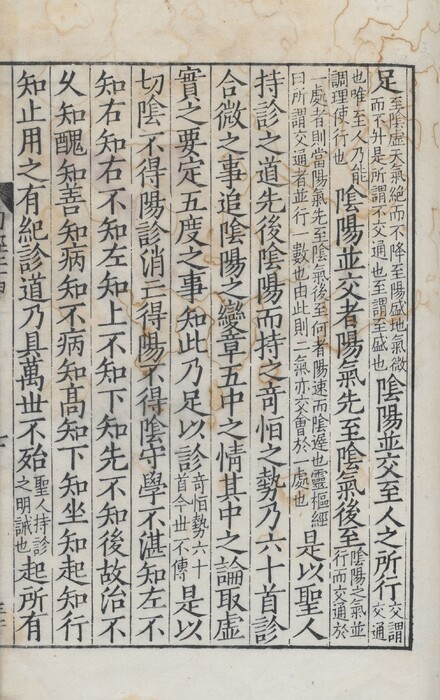 足至陰虛天氣絕而不降至陽盛地氣微
而不升是所謂不交通也至謂至盛也
陰陽並交至人之所行交謂
交通
也唯至人乃能
調理使行也
陰陽並交者陽氣先至陰氣後至陰陽之氣並
行而交通於
一處者則當陽氣先至陰氣後至何者陽速而陰遲也靈樞經
曰所謂交通者並行一數也由此則二氣亦交會於一處也
是以聖人
持診之道先後陰陽而持之奇恒之勢乃六十首診
合微之事追陰陽之變章五中之情其中之論取虛
實之要定五度之事知此乃足以診奇恒勢六十
首今世不傳
是以
切陰不得陽診消亡得陽不得陰守學不湛知左不
知右知右不知左知上不知下知先不知後故治不
久知醜知善知病知不病知高知下知坐知起知行
知止用之有紀診道乃具萬世不殆聖人持診
之明誡也
起所有